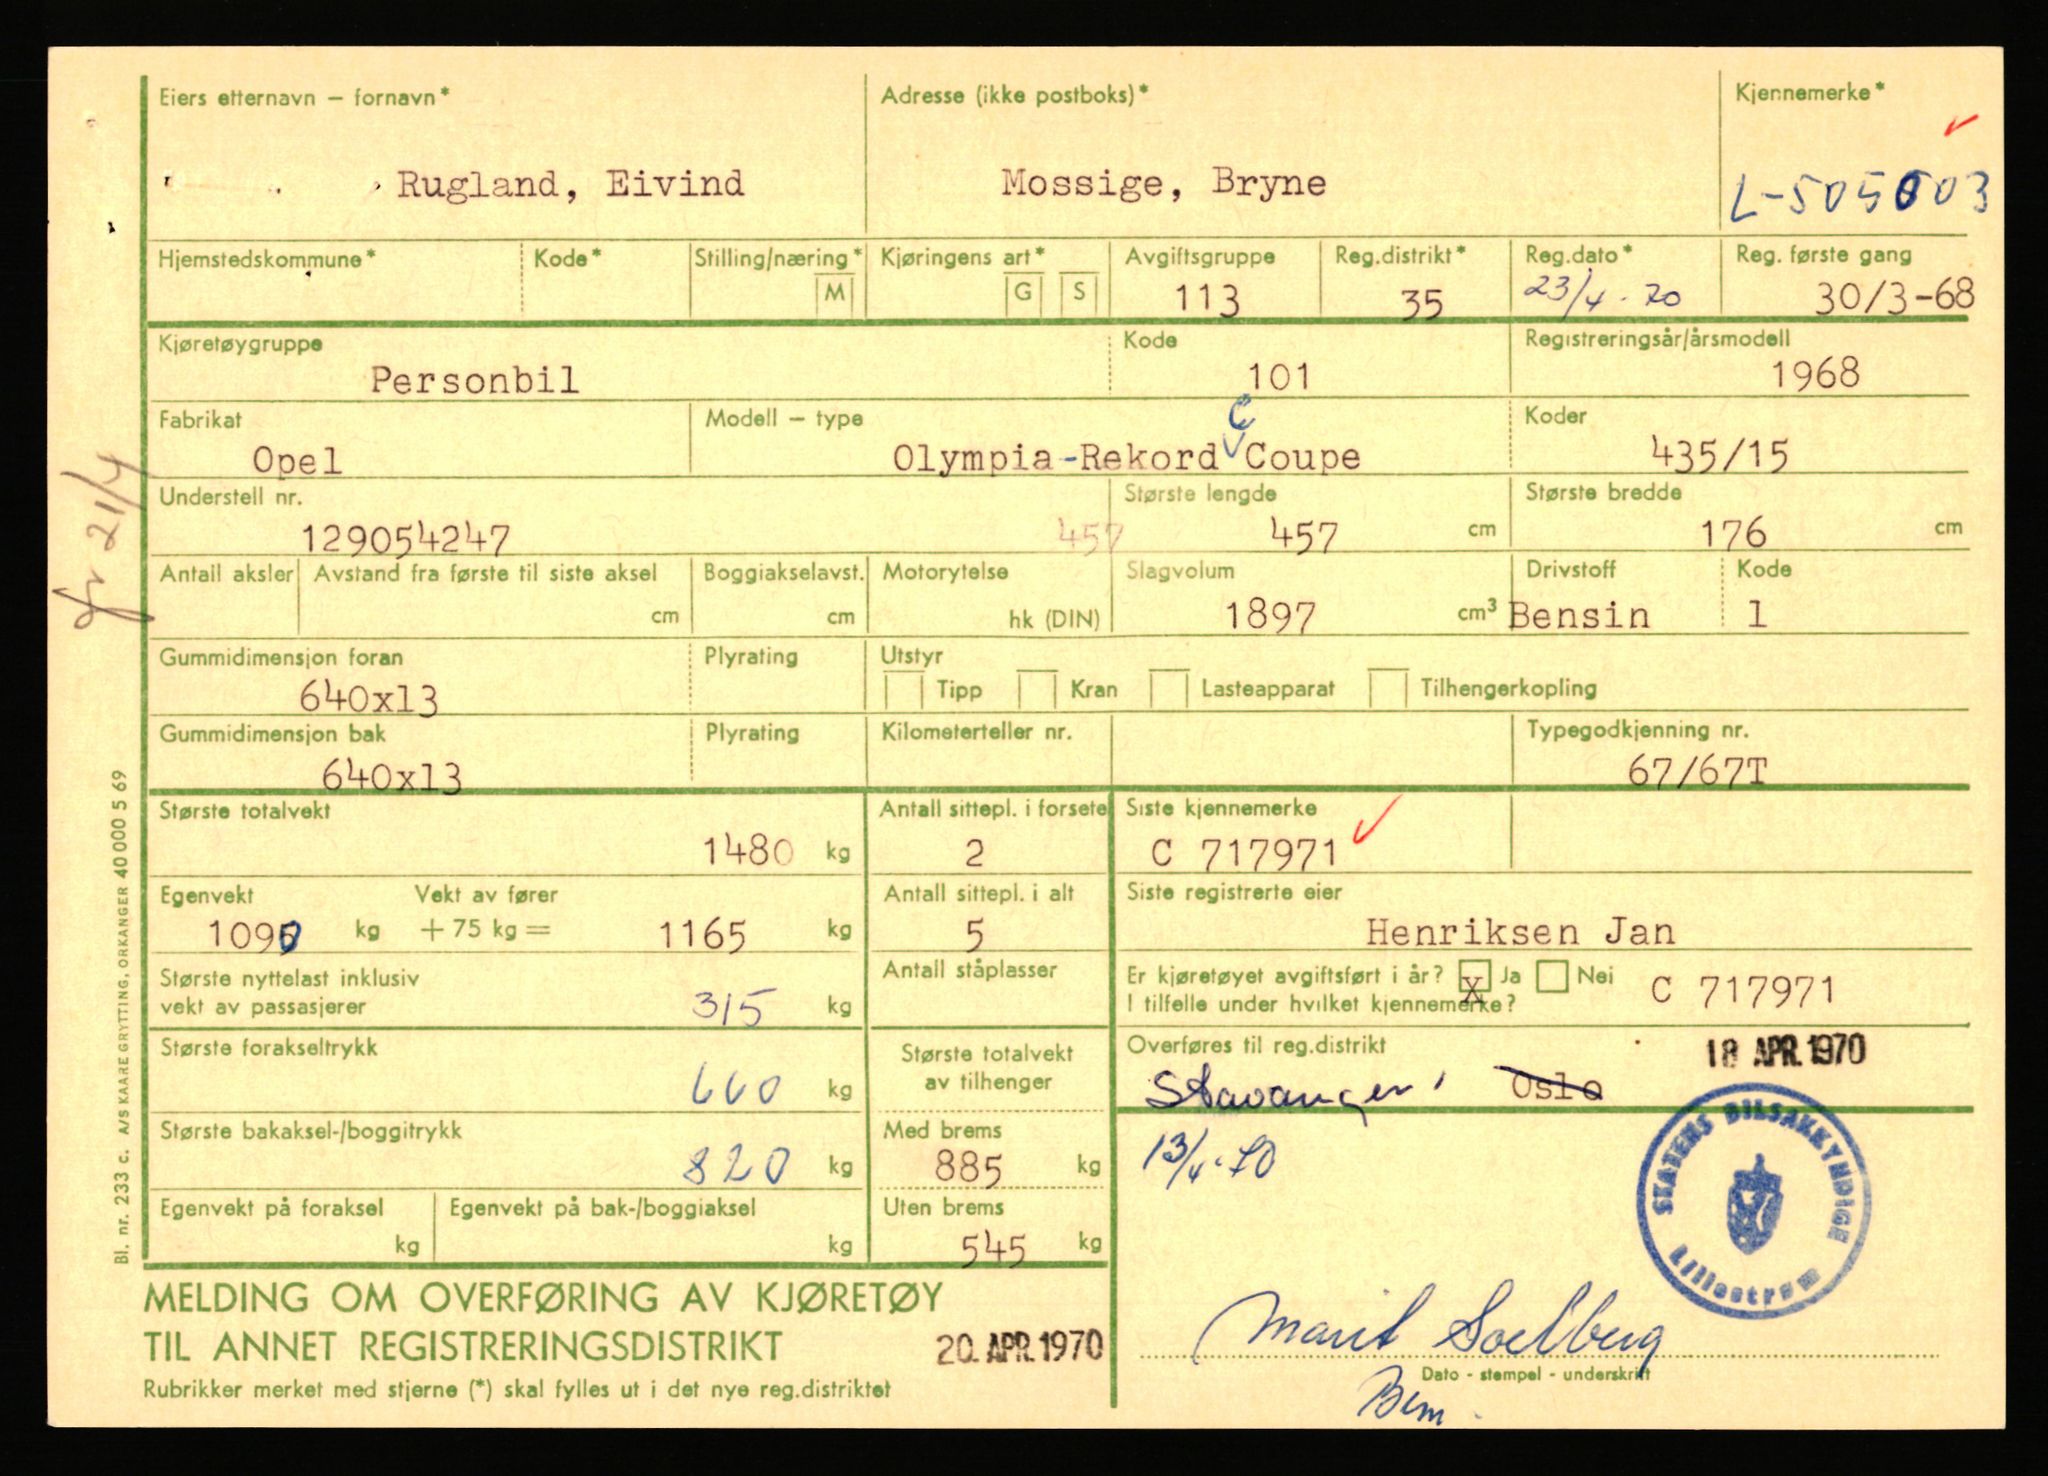 Eiers etternavn – fornavn* Adresse (ikke postboks)* Kjennemerke*
Rugland, Eivind Mossige, Bryne L-505503
Hjemstedskommune* Kode* Stilling/næring* M Kjøringens art* G S Avgiftsgruppe 113 Reg.distrikt* 35 Reg.dato* 23/4-70 Reg. første gang 30/3-68
Kjøretøygruppe Kode Registreringsår/årsmodell
Personbil 101 1968
Fabrikat Modell – type Koder
C
Opel Olympia-Rekord Coupe 435/15
Understell nr. Største lengde Største bredde
129054247 457 457 cm 176 cm
Antall aksler Avstand fra første til siste aksel Boggiakselavst. Motorytelse Slagvolum Drivstoff Kode
cm cm hk (DIN) 1897 cm³ Bensin 1
Gummidimensjon foran Plyrating Utstyr
640x13 Tipp Kran Lasteapparat Tilhengerkopling
Gummidimensjon bak Plyrating Kilometerteller nr. Typegodkjenning nr.
640x13 67/67T
Største totalvekt Antall sittepl. i forsete Siste kjennemerke
1480 kg 2 C 717971
Egenvekt Vekt av fører Antall sittepl. i alt Siste registrerte eier
1090 kg + 75 kg = 1165 kg 5 Henriksen Jan
Største nyttelast inklusiv Antall ståplasser Er kjøretøyet avgiftsført i år? X Ja Nei
vekt av passasjerer 315 kg I tilfelle under hvilket kjennemerke? C 717971
Største forakseltrykk Største totalvekt Overføres til reg.distrikt 18 APR. 1970
660 kg av tilhenger Stavanger Oslo
Største bakaksel-/boggitrykk Med brems 13/4-70
820 kg 885 kg
Egenvekt på foraksel Egenvekt på bak-/boggiaksel Uten brems
kg kg 545 kg
STATENS BILSAKKYNDIGE
Lillestrøm
MELDING OM OVERFØRING AV KJØRETØY
TIL ANNET REGISTRERINGSDISTRIKT 20. APR. 1970
Marit Solberg
Dato - stempel - underskrift
Rubrikker merket med stjerne (*) skal fylles ut i det nye reg.distriktet
Bl. nr. 233 c. A/S KAARE GRYTTING, ORKANGER 40 000 5 69
21/4